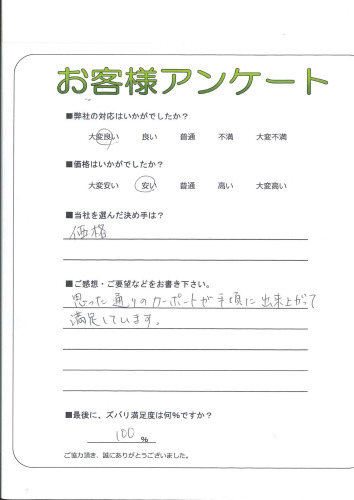 お客様アンケート
■弊社の対応はいかがでしたか？
大変良い 良い 普通 不満 大変不満
■価格はいかがでしたか？
大変安い 安い 普通 高い 大変高い
■当社を選んだ決め手は？
価格
■ご感想・ご要望などをお書き下さい。
思った通りのカーポートが手頃に出来上がって
満足しています。
■最後に、ズバリ満足度は何％ですか？
100 ％
ご協力頂き、誠にありがとうございました。